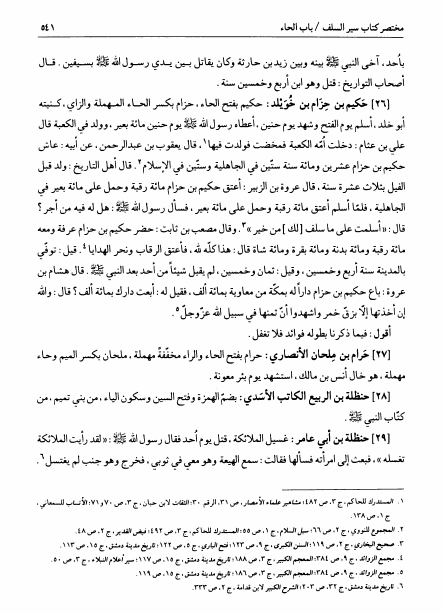 مختصر كتاب سير السلف / باب الحاء ٥٤١
بأحد، آخى النبي ﷺ بينه وبين زيد بن حارثة وكان يقاتل بين يدي رسول الله ﷺ بسيفين. قال
أصحاب التواريخ: قتل وهو ابن أربع وخمسين سنة.
[٢٦] حَكيم بن حِزام بن خُوَيْلد: حكيم بفتح الحاء، حزام بكسر الحاء المهملة والزاي، كنيته
أبو خلد، أسلم يوم الفتح وشهد يوم حنين، أعطاه رسول الله ﷺ يوم حنين مائة بعير، وولد في الكعبة قال
علي بن عثام: دخلت أمّه الكعبة فمخضت فولدت فيها١، قال يعقوب بن عبدالرحمن، عن أبيه: عاش
حكيم بن حزام عشرين ومائة سنة ستّين في الجاهلية وستّين في الإسلام٢. قال أهل التاريخ: ولد قبل
الفيل بثلاث عشرة سنة، قال عروة بن الزبير: أعتق حكيم بن حزام مائة رقبة وحمل على مائة بعير في
الجاهلية، فلمّا أسلم أعتق مائة رقبة وحمل على مائة بعير، فسأل رسول الله ﷺ: هل له فيه من أجر؟
قال: «أسلمت على ما سلف [لك] من خير»٣. وقال مصعب بن ثابت: حضر حكيم بن حزام عرفة ومعه
مائة رقبة ومائة بدنة ومائة بقرة ومائة شاة قال: هذا كلّه لله، فأعتق الرقاب ونحر الهدايا٤. قيل: توفّي
بالمدينة سنة أربع وخمسين، وقيل: ثمان وخمسين، لم يقبل شيئاً من أحد بعد النبي ﷺ. قال هشام بن
عروة: باع حكيم بن حزام داراً له بمكّة من معاوية بمائة ألف، فقيل له: أبعت دارك بمائة ألف؟ قال: والله
إن أخذتها إلّا بزقّ خمر واشهدوا أنّ ثمنها في سبيل الله عزّ وجلّ٥.
أقول: فيما ذكرنا بطوله فوائد فلا تغفل.
[٢٧] حَرام بن مِلحان الأنصاري: حرام بفتح الحاء والراء مخفّفةً مهملة، ملحان بكسر الميم وحاء
مهملة، هو خال أنس بن مالك، استشهد يوم بئر معونة.
[٢٨] حنظلة بن الربيع الكاتب الأُسَدي: بضمّ الهمزة وفتح السين وسكون الياء، من بني تميم، من
كتّاب النبي ﷺ.
[٢٩] حنظلة بن أبي عامر: غسيل الملائكة، قتل يوم أُحد فقال رسول الله ﷺ: «لقد رأيت الملائكة
تغسله»، فبعث إلى امرأته فسألها فقالت: سمع الهيعة وهو معي في ثوبي، فخرج وهو جنب لم يغتسل٦.
١. المستدرك للحاكم، ج ٣، ص ٤٨٢؛ مشاهير علماء الأمصار، ص ٣١، الرقم ٣٠؛ الثقات لابن حبان، ج ٣، ص ٧٠ و ٧١؛ الأنساب للسمعاني،
ج ١، ص ١٣٨.
٢. المجموع للنووي، ج ٢، ص ٦٦؛ سبل السلام، ج ١، ص ٥٥؛ المستدرك للحاكم، ج ٣، ص ٤٩٢؛ فيض القدير، ج ٢، ص ٤٨.
٣. صحيح البخاري، ج ٢، ص ١١٩؛ السنن الكبرى، ج ٩، ص ١٢٣؛ فتح الباري، ج ٥، ص ١٢٢؛ تاريخ مدينة دمشق، ج ١٥، ص ١١٣.
٤. مجمع الزوائد، ج ٩، ص ٣٨٤؛ المعجم الكبير، ج ٣، ص ١٨٨؛ تاريخ مدينة دمشق، ج ١٥، ص ١١٧؛ سير أعلام النبلاء، ج ٣، ص ٥٠.
٥. مجمع الزوائد، ج ٩، ص ٣٨٤؛ المعجم الكبير، ج ٣، ص ١٨٦؛ تاريخ مدينة دمشق، ج ١٥، ص ١١٩.
٦. تاريخ مدينة دمشق، ج ٣٢، ص ٢٠٣؛ الشرح الكبير لابن قدامة، ج ٢، ص ٣٣٣.